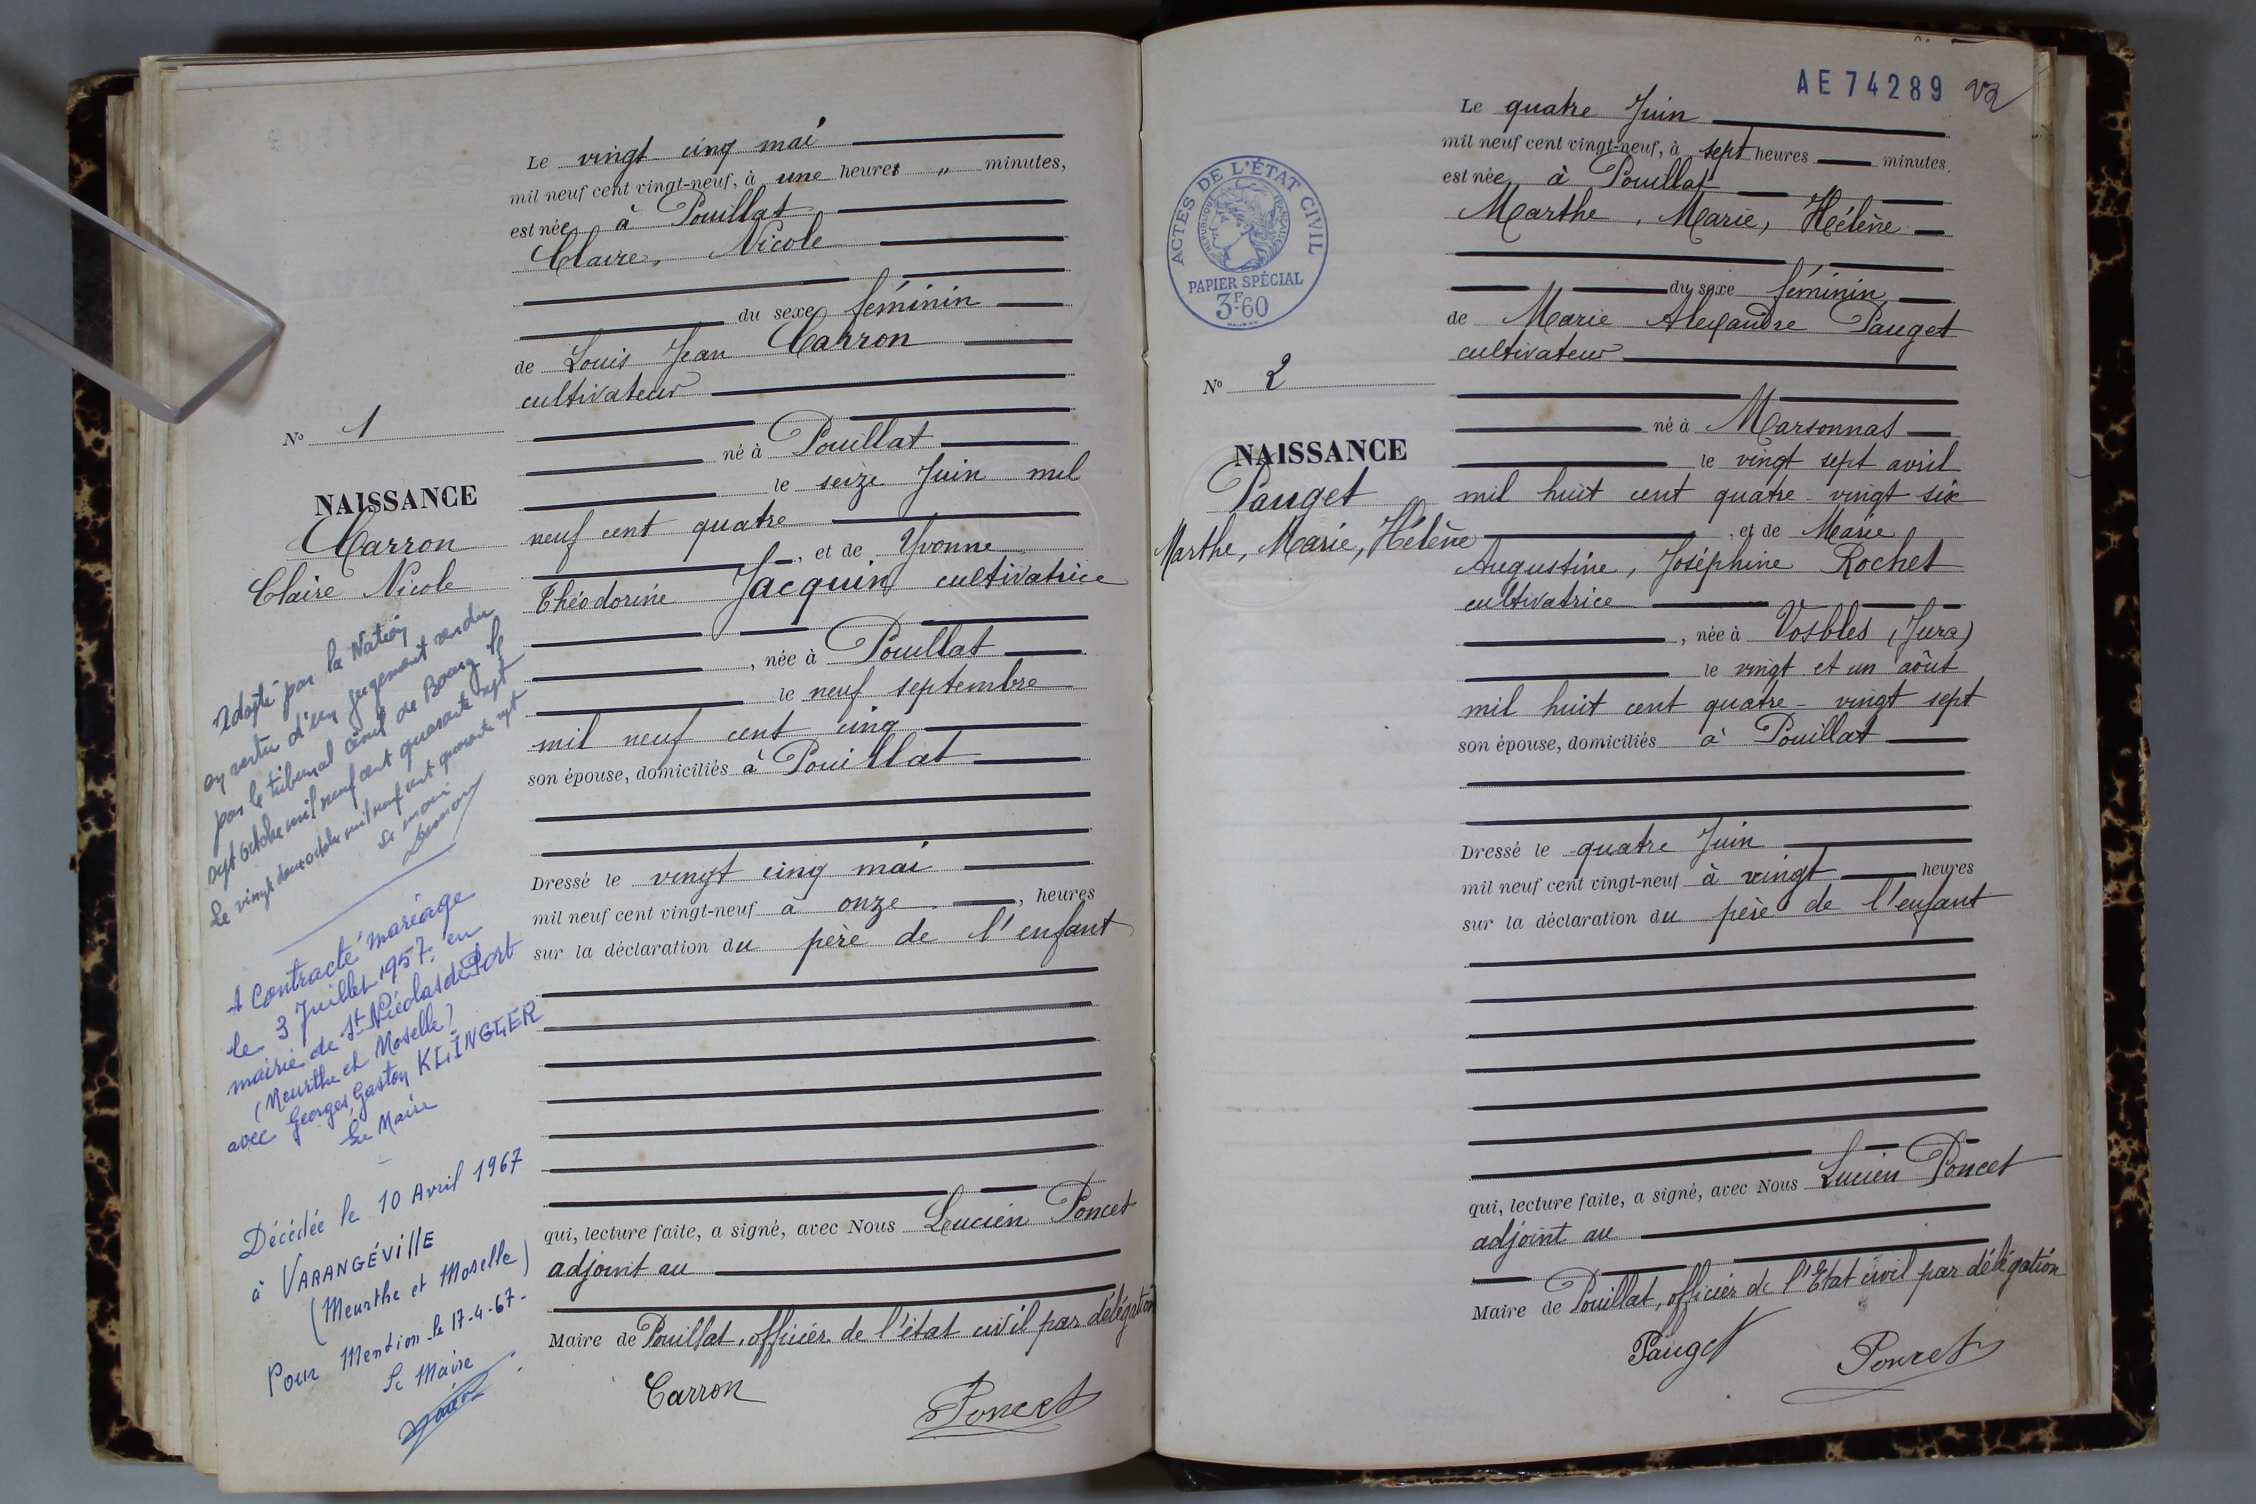 Le vingt cinq mai
mil neuf cent vingt-neuf, à une heures " minutes,
est née à Pouillat
Claire, Nicole
du sexe féminin
de Louis Jean Carron
cultivateur
né à Pouillat
le seize Juin mil
neuf cent quatre
, et de Yvonne
Théodorine Jacquin cultivatrice
, née à Pouillat
le neuf septembre
mil neuf cent cinq
son épouse, domiciliés à Pouillat
Dressé le vingt cinq mai
mil neuf cent vingt-neuf à onze, heures
sur la déclaration du père de l'enfant
qui, lecture faite, a signé, avec Nous Lucien Poncet
adjoint au
Maire de Pouillat, officier de l'état civil par délégation
Carron
Poncet
No 1
NAISSANCE
Carron
Claire Nicole
Adopté par la Nation
en vertu d'un jugement rendu
par le tribunal civil de Bourg le
sept octobre mil neuf cent quarante sept
Le vingt deux octobre mil neuf cent quarante sept
Le maire
A contracté mariage
le 3 Juillet 1957 en
mairie de St Nicolas de Port
(Meurthe et Moselle)
avec Georges Gaston KLINGLER
Le Maire
Décédée le 10 Avril 1967
à VARANGÉVILLE
(Meurthe et Moselle)
Pour Mention le 17-4-67-
Le Maire
AE 74289 22
ACTES DE L'ÉTAT CIVIL
RÉPUBLIQUE FRANÇAISE
PAPIER SPÉCIAL
3F60
No 2
NAISSANCE
Pauget
Marthe, Marie, Hélène
Le quatre Juin
mil neuf cent vingt-neuf, à sept heures minutes.
est née à Pouillat
Marthe, Marie, Hélène
du sexe féminin
de Marie Alexandre Pauget
cultivateur
né à Marsonnas
le vingt sept avril
mil huit cent quatre-vingt six
, et de Marie
Augustine, Joséphine Rochet
cultivatrice
, née à Vosbles (Jura)
le vingt et un août
mil huit cent quatre-vingt sept
son épouse, domiciliés à Pouillat
Dressé le quatre Juin
mil neuf cent vingt-neuf à vingt heures
sur la déclaration du père de l'enfant
qui, lecture faite, a signé, avec Nous Lucien Poncet
adjoint au
Maire de Pouillat, officier de l'Etat civil par délégation
Pauget
Poncet